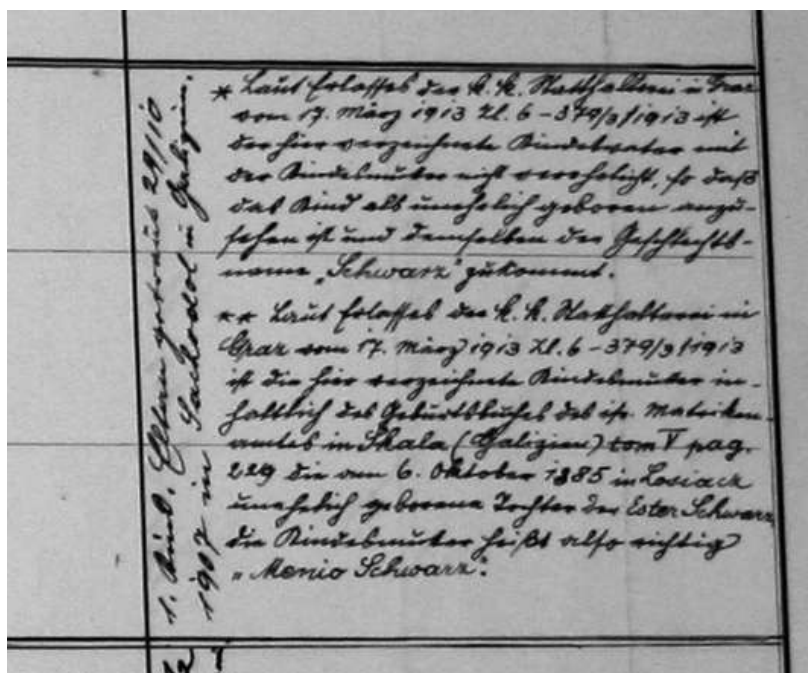 1. Kind, Eltern getraut 29/10
1907 in Sachodol in Galizien.
* Laut Erlasses der k. k. Statthalterei in Graz
vom 17. März 1913 Zl. 6 - 379/3 / 1913 ist
der hier verzeichnete Kindesvater mit
der Kindesmutter nicht verehelicht, so daß
das Kind als unehelich geboren anzu-
sehen ist und demselben der Geschlechts-
name „Schwarz" zukommt.
** Laut Erlasses der k. k. Statthalterei in
Graz vom 17. März 1913 Zl. 6 - 379/3 / 1913
ist die hier verzeichnete Kindesmutter in-
haltlich des Geburtsbuches des isr. Matriken-
amtes in Skala (Galizien) tom V pag.
229 die am 6. Oktober 1885 in Losiacz
unehelich geborene Tochter der Ester Schwarz,
die Kindesmutter heißt also richtig
„Menio Schwarz".